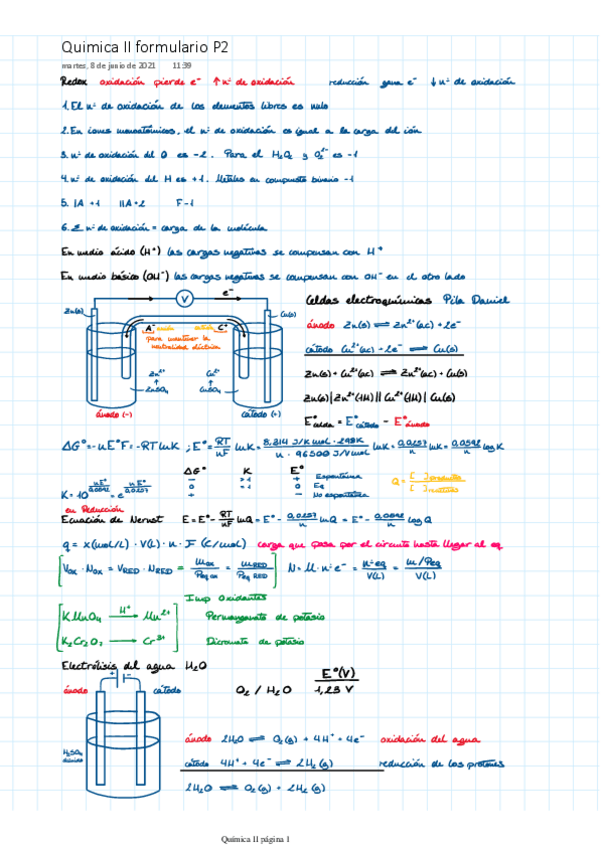 Quimica II formulario P2
martes, 8 de junio de 2021 11:39
Redox oxidación pierde e⁻ ↑ nº de oxidación reducción gana e⁻ ↓ nº de oxidación
1. El nº de oxidación de los elementos libres es nulo
2. En iones monoatómicos, el nº de oxidación es igual a la carga del ión
3. nº de oxidación del O es -2. Para el H₂O₂ y O₂²⁻ es -1
4. nº de oxidación del H es +1. Metales en compuesto binario -1
5. IA +1 IIA +2 F -1
6. Σ nº de oxidación = carga de la molécula
En medio ácido (H⁺) las cargas negativas se compensan con H⁺
En medio básico (OH⁻) las cargas negativas se compensan con OH⁻ en el otro lado
V e⁻
Zn(s) Cu(s)
A⁻ C⁺
para mantener la neutralidad eléctrica
Zn²⁺ Cu²⁺
ZnSO₄ CuSO₄
ánodo (-) cátodo (+)
Celdas electroquímicas Pila Daniel
ánodo Zn(s) ⇌ Zn²⁺(ac) + 2e⁻
cátodo Cu²⁺(ac) + 2e⁻ ⇌ Cu(s)
Zn(s) + Cu²⁺(ac) ⇌ Zn²⁺(ac) + Cu(s)
Zn(s) | Zn²⁺(1M) || Cu²⁺(1M) | Cu(s)
E°celda = E°cátodo - E°ánodo
ΔG° = -nE°F = -RT lnK ; E° = RT/nF lnK = 8,314 J/K mol · 298K / n · 96500 J/V mol lnK = 0,0257/n lnK = 0,0592/n log K
ΔG° K E°
- >1 + Espontánea
0 =1 0 Eq
+ <1 - No espontánea
K = 10^(nE°/0,0592) = e^(nE°/0,0257)
Q = [ ]productos / [ ]reactivos
en Reducción
Ecuación de Nernst E = E° - RT/nF lnQ = E° - 0,0257/n lnQ = E° - 0,0592/n log Q
q = x(mol/L) · V(L) · n · F (C/mol) carga que pasa por el circuito hasta llegar al eq
Vox · Nox = VRED · NRED = mox/Peq ox = mRED/Peq RED N = M · nºe⁻ = nºeq/V(L) = m/Peq/V(L)
Imp Oxidantes
KMnO₄ H⁺→ Mn²⁺ Permanganato de potasio
K₂Cr₂O₇ → Cr³⁺ Dicromato de potasio
Electrólisis del agua H₂O
ánodo + - cátodo
E°(V)
O₂ / H₂O 1,23 V
H₂SO₄
diluido
ánodo 2H₂O ⇌ O₂(g) + 4H⁺ + 4e⁻ oxidación del agua
cátodo 4H⁺ + 4e⁻ ⇌ 2H₂(g) reducción de los protones
2H₂O ⇌ O₂(g) + 2H₂(g)
Química II página 1